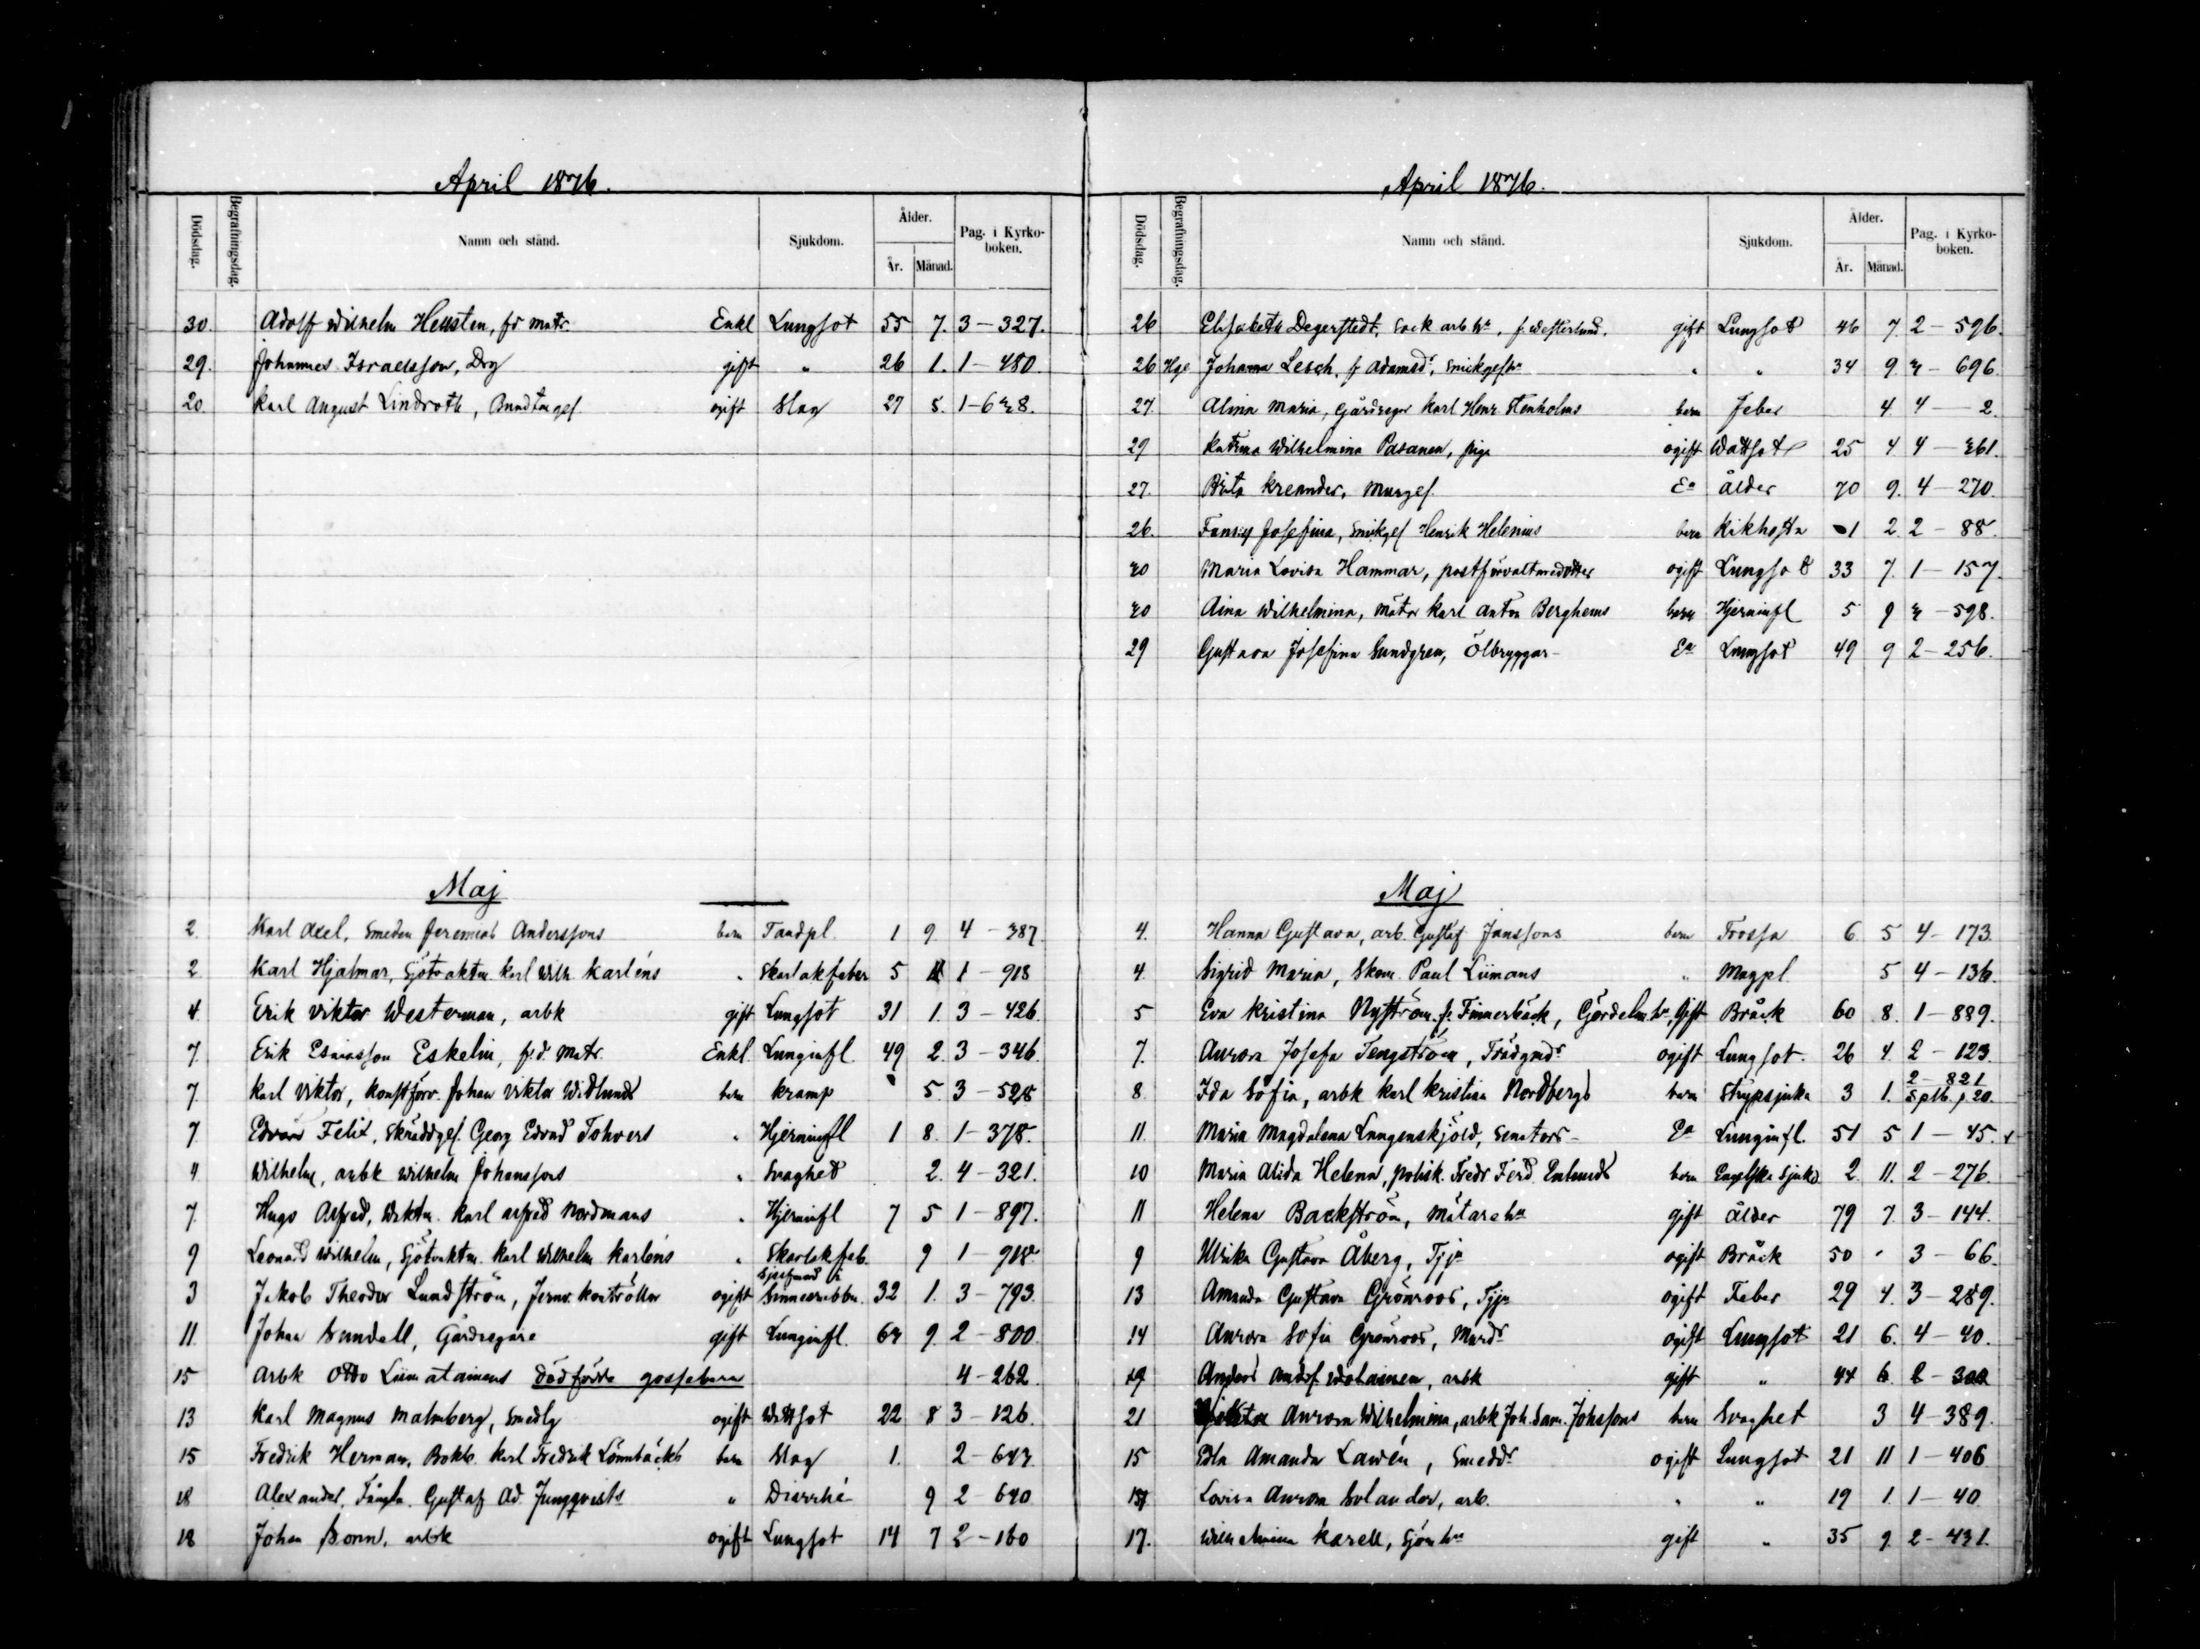 April 1876.
Dödsdag. Begrafningsdag. Namn och stånd. Sjukdom. Ålder. År. Månad. Pag. i Kyrko-boken.
30. Adolf Wilhelm Hellsten, fd matr. Enkl Lungsot 55 7. 3-327.
29. Johannes Israelsson, Drg gift " 26 1. 1-480.
20. Karl August Lindroth, ogift Slag 27 5. 1-638.
Maj
2. Karl Axel, Smeden Jeremias Anderssons barn Tandpl. 1 9. 4-387.
2. Karl Hjalmar, Sjötvaktm. Karl Wilh. Karléns " Skarlakfeber 5 1-918
4. Erik Viktor Westerman, arbk gift Lungsot 31 1. 3-426.
7. Erik Esaiasson Eskelin, fr.d. Matr. Enkl. Lunginfl. 49 2. 3-346.
7. Karl Viktor, Konstförv. Johan Viktor Widlunds barn Kramp 5. 3-528
7. Edvard Felix, Skräddges. Georg Edvard Tohvers " Hjerninfl 1 8. 1-378.
4. Wilhelm, arbk Wilhelm Johanssons " Svaghet 2. 4-321.
7. Hugo Alfred, Waktm. Karl Alfred Nordmans " Hjerninfl 7 5 1-897.
9 Leonard Wilhelm, Sjötvaktm. Karl Wilhelm Karléns " Skarlakfeb. 9 1-918
3 Jakob Theodor Lundström, Jernv. Kontrollör ogift Sinnesrubbn. 32 1. 3-793.
11. Johan Sundell, Gårdsegare gift Lunginfl. 63 9. 2-800.
15 Arbk Otto Liimatainens dödfödda gossebarn 4-262
13 Karl Magnus Malmberg, Smedlg ogift Wattsot 22 8 3-126.
15 Fredrik Herman, Bokb. Karl Fredrik Lönnbäcks barn Slag 1. 2-643.
18 Alexander, Gustaf Ad. Jungqvists " Diarrhé 9 2-640
18 Johan Bonn, arbk ogift Lungsot 14 7 2-160
April 1876.
Dödsdag. Begrafningsdag. Namn och stånd. Sjukdom. Ålder. År. Månad. Pag. i Kyrko-boken.
26 Elisabeth Degerstedt, Sock arb hu, f. Westerlund. gift Lungsot 46 7. 2-596.
26 Hge Johanna Lesch, f. Adamsdr, " " 34 9. 3-696
27. Alina Maria, Gårdsegar Karl Henr. Stenholms barn Feber 4. 4-2.
29 Katrina Wilhelmina Pasanen, piga ogift Wattsot 25 4 4-361.
27. Brita Kreander, Murges. Ea Ålder 70 9. 4-270.
26. Fanny Josefina, Henrik Helenius barn Kikhosta 1 2. 2-88.
30 Maria Lovisa Hammar, postförvaltaredotter ogift Lungsot 33 7. 1-157.
30 Aina Wilhelmina, Matr Karl Anton Berghems barn Hjerninfl 5 9 3-598.
29 Gustava Josefina Sundgren, Ölbryggar- Ea Lungsot 49 9 2-256.
Maj
4. Hanna Gustava, arb. Gustaf Janssons barn Trossja 6. 5 4-173
4. Sigrid Maria, Skom. Paul Liimans " Magpl. 5 4-136.
5 Eva Kristina Nyström f. Finnerbäck, gift Bråck 60 8. 1-889.
7. Aurora Josefa Tengström, ogift Lungsot. 26 4. 2-123.
8. Ida Sofia, arbk Karl Kristian Nordbergs barn Strypsjuka 3 1. 2-821 p. 20.
11. Maria Magdalena Langenskjöld, Senators- Ea Lunginfl. 51 5 1-45.
10 Maria Alida Helena, polisk. Fredr Ferd. Enlunds barn Engelska Sjuka 2 11. 2-276.
11 Helena Backström, Mätare hu gift Ålder 79 7. 3-144.
9 Ulrika Gustava Åberg, Tjja ogift Bråck 50 " 3-66.
13 Amanda Gustava Grönroos, Tjja ogift Feber 29 4. 3-289.
14 Aurora Sofia Grönroos, Murdr ogift Lungsot 21 6. 4-40.
19 Anders Wolainen, arbk gift " 44 6.
21 Aurora Wilhelmina, arbk Joh. Sam. Johssons barn Svaghet 3 4-389.
15 Edla Amanda Lawén, Smeddr ogift Lungsot 21 11 1-406
Lovisa Aurora Solander, arb. " " 19 1. 1-40
17. Wilhelmina Karell, Sjömhu gift " 35 9. 2-431.